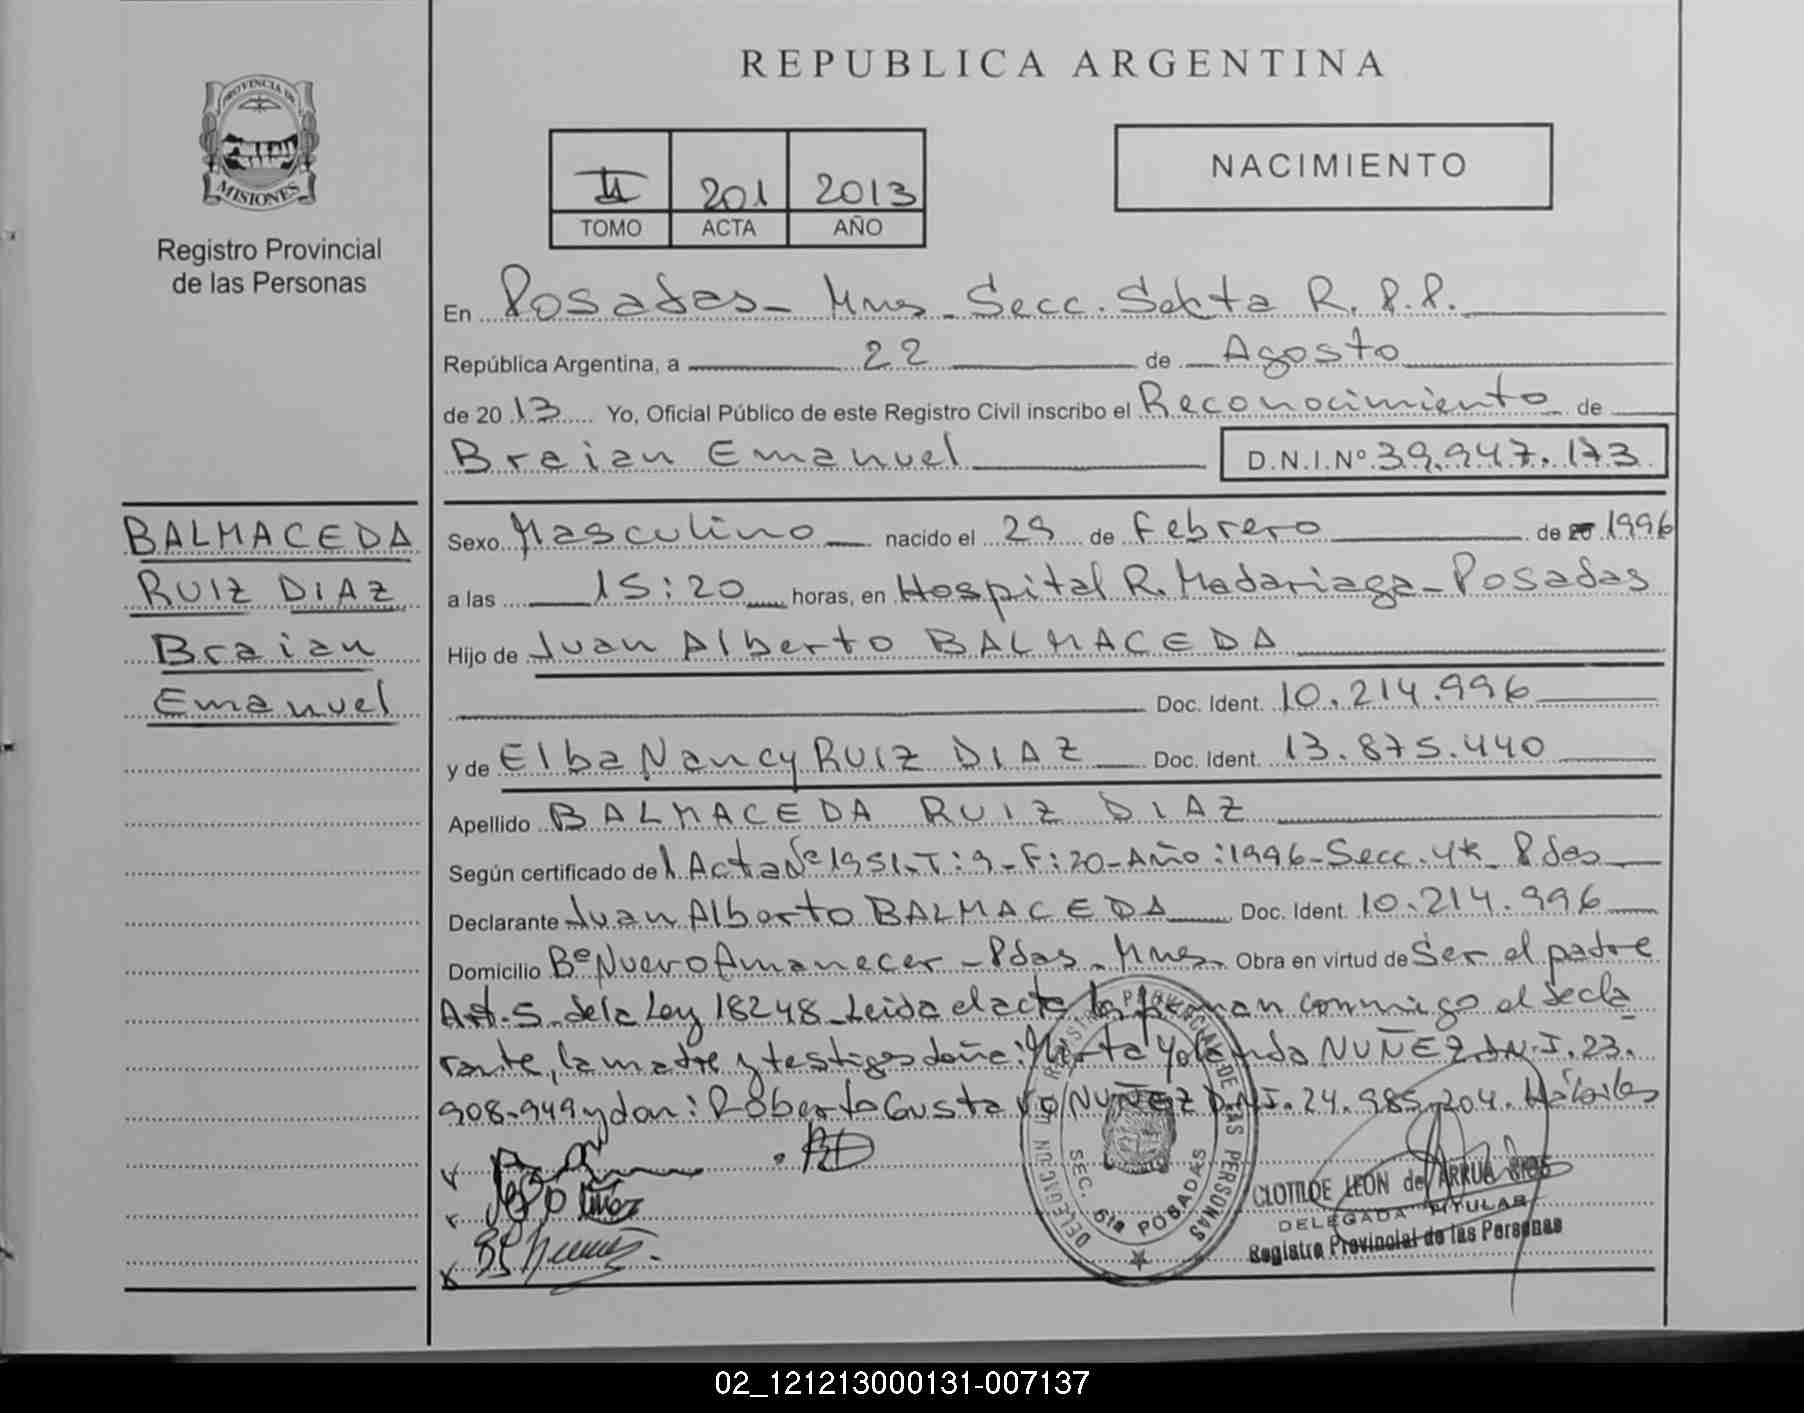 REPUBLICA ARGENTINA
PROVINCIA DE
MISIONES
Registro Provincial
de las Personas
II 201 2013
TOMO ACTA AÑO
NACIMIENTO
En Posadas - Mnes - Secc. Sexta R.P.P.
República Argentina, a 22 de Agosto
de 2013 Yo, Oficial Público de este Registro Civil inscribo el Reconocimiento de
Braian Emanuel D.N.I.Nº 39.947.173
BALMACEDA
RUIZ DIAZ
Braian
Emanuel
Sexo Masculino nacido el 29 de Febrero de 1996
a las 15:20 horas, en Hospital R. Madariaga - Posadas
Hijo de Juan Alberto BALMACEDA
Doc. Ident. 10.214.996
y de Elba Nancy RUIZ DIAZ Doc. Ident. 13.875.440
Apellido BALMACEDA RUIZ DIAZ
Según certificado de Acta Nº 1951-T:9-F:20-Año:1996-Secc. 4ta Pdas
Declarante Juan Alberto BALMACEDA Doc. Ident. 10.214.996
Domicilio Bº Nuevo Amanecer - Pdas - Mnes. Obra en virtud de Ser el padre
Art. 5 de la Ley 18248 - Leida el acta la firman conmigo el decla
rante, la madre y testigos doña: Mirta Yolanda NUÑEZ D.N.I. 23.
908.949 y don: Roberto Gustavo NUÑEZ D.N.I. 24.985.204. Hábiles
REGISTRO PROVINCIAL DE LAS PERSONAS
DELEGACION
SEC. 6ta POSADAS
CLOTILDE LEON de ARRUA
DELEGADA TITULAR
Registro Provincial de las Personas
02_121213000131-007137